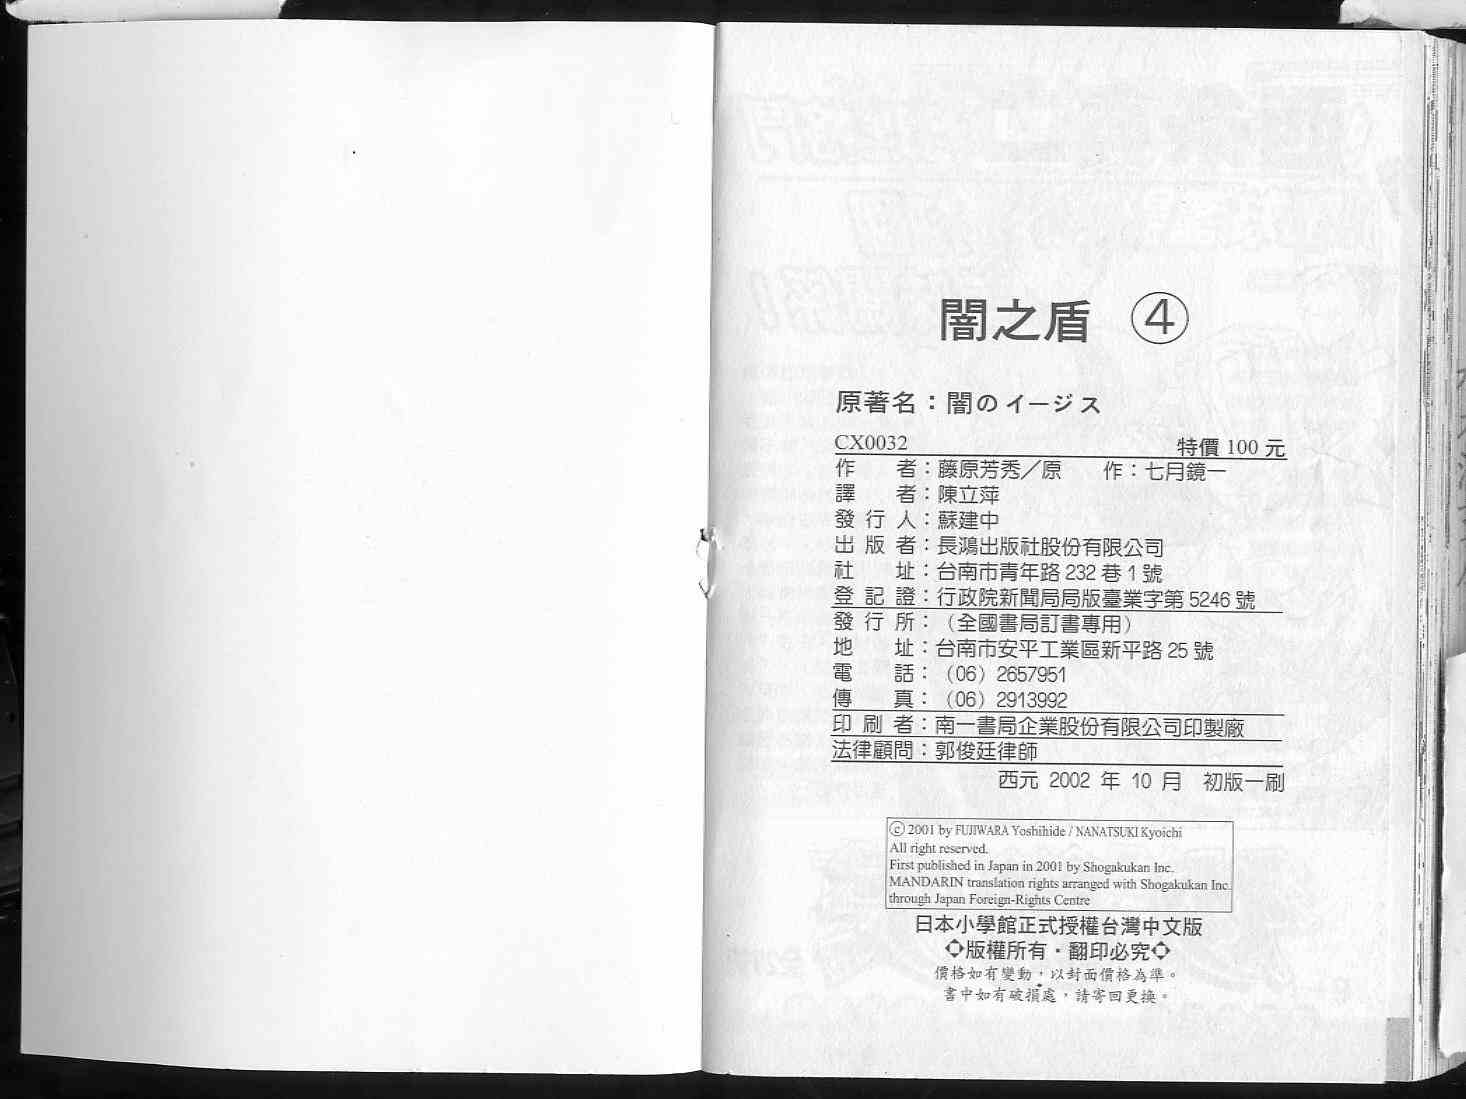 闇之盾 ④
原著名：闇のイージス
CX0032 特價 100 元
作者：藤原芳秀／原作：七月鏡一
譯者：陳立萍
發行人：蘇建中
出版者：長鴻出版社股份有限公司
社址：台南市青年路 232 巷 1 號
登記證：行政院新聞局局版臺業字第 5246 號
發行所：（全國書局訂書專用）
地址：台南市安平工業區新平路 25 號
電話：（06）2657951
傳真：（06）2913992
印刷者：南一書局企業股份有限公司印製廠
法律顧問：郭俊廷律師
西元 2002 年 10 月 初版一刷
ⓒ 2001 by FUJIWARA Yoshihide / NANATSUKI Kyoichi
All right reserved.
First published in Japan in 2001 by Shogakukan Inc.
MANDARIN translation rights arranged with Shogakukan Inc.
through Japan Foreign-Rights Centre
日本小學館正式授權台灣中文版
◇版權所有・翻印必究◇
價格如有變動，以封面價格為準。
書中如有破損處，請寄回更換。